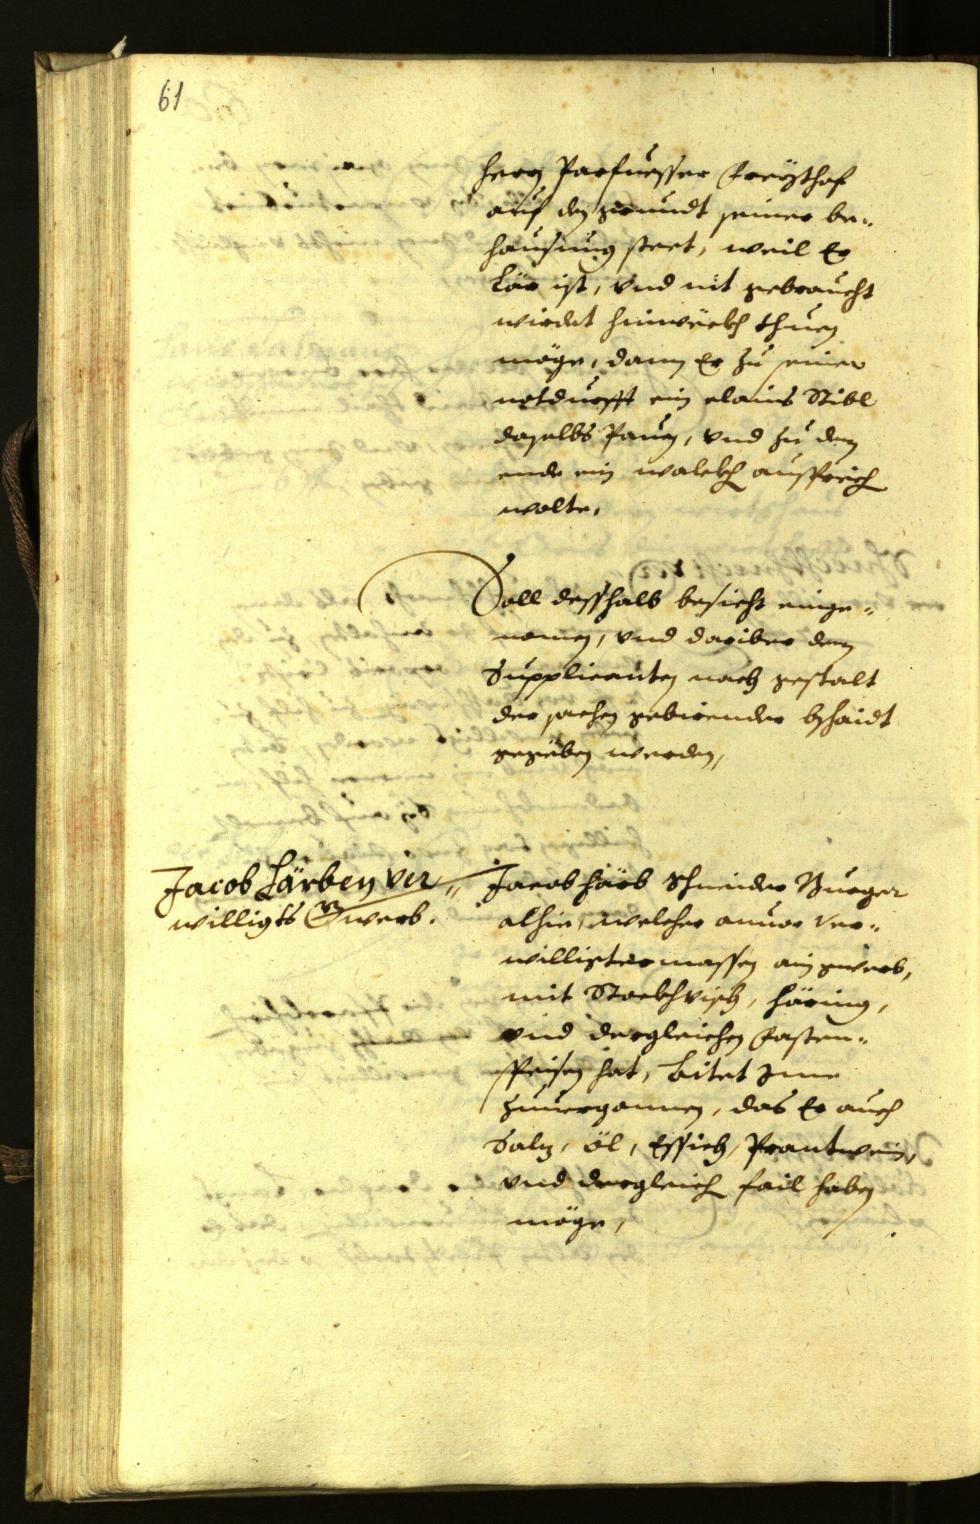 61
herrn Parfuesser Freythof
auf den grundt seiner be-
hausung steet, weil Er
Lär ist, vnd nit gebraucht
wirdet hinweckh thuen
möge, dann Er zu seiner
notdurfft ein clains Stibl
daselbs Pauen, vnd zu dem
ende ein
wolte,
Soll desshalb besicht einge-
nomen, vnd dariber dem
Supplicanten nach gestalt
der sachen gebirender bschaidt
gegeben werden,
Jacob Lärben ver-
willigts Gwerb.
Jacob Härb Schneider Burger
alhie, welcher anuor ver-
willigtermassen ain gwerb,
mit Stockhvisch, Häring,
vnd dergleichen Fasten-
speisen hat, bitet Jme
zuuergonnen, das Er auch
Salz, öl, Essich, Prantwein,
vnd dergleich fail haben
möge,